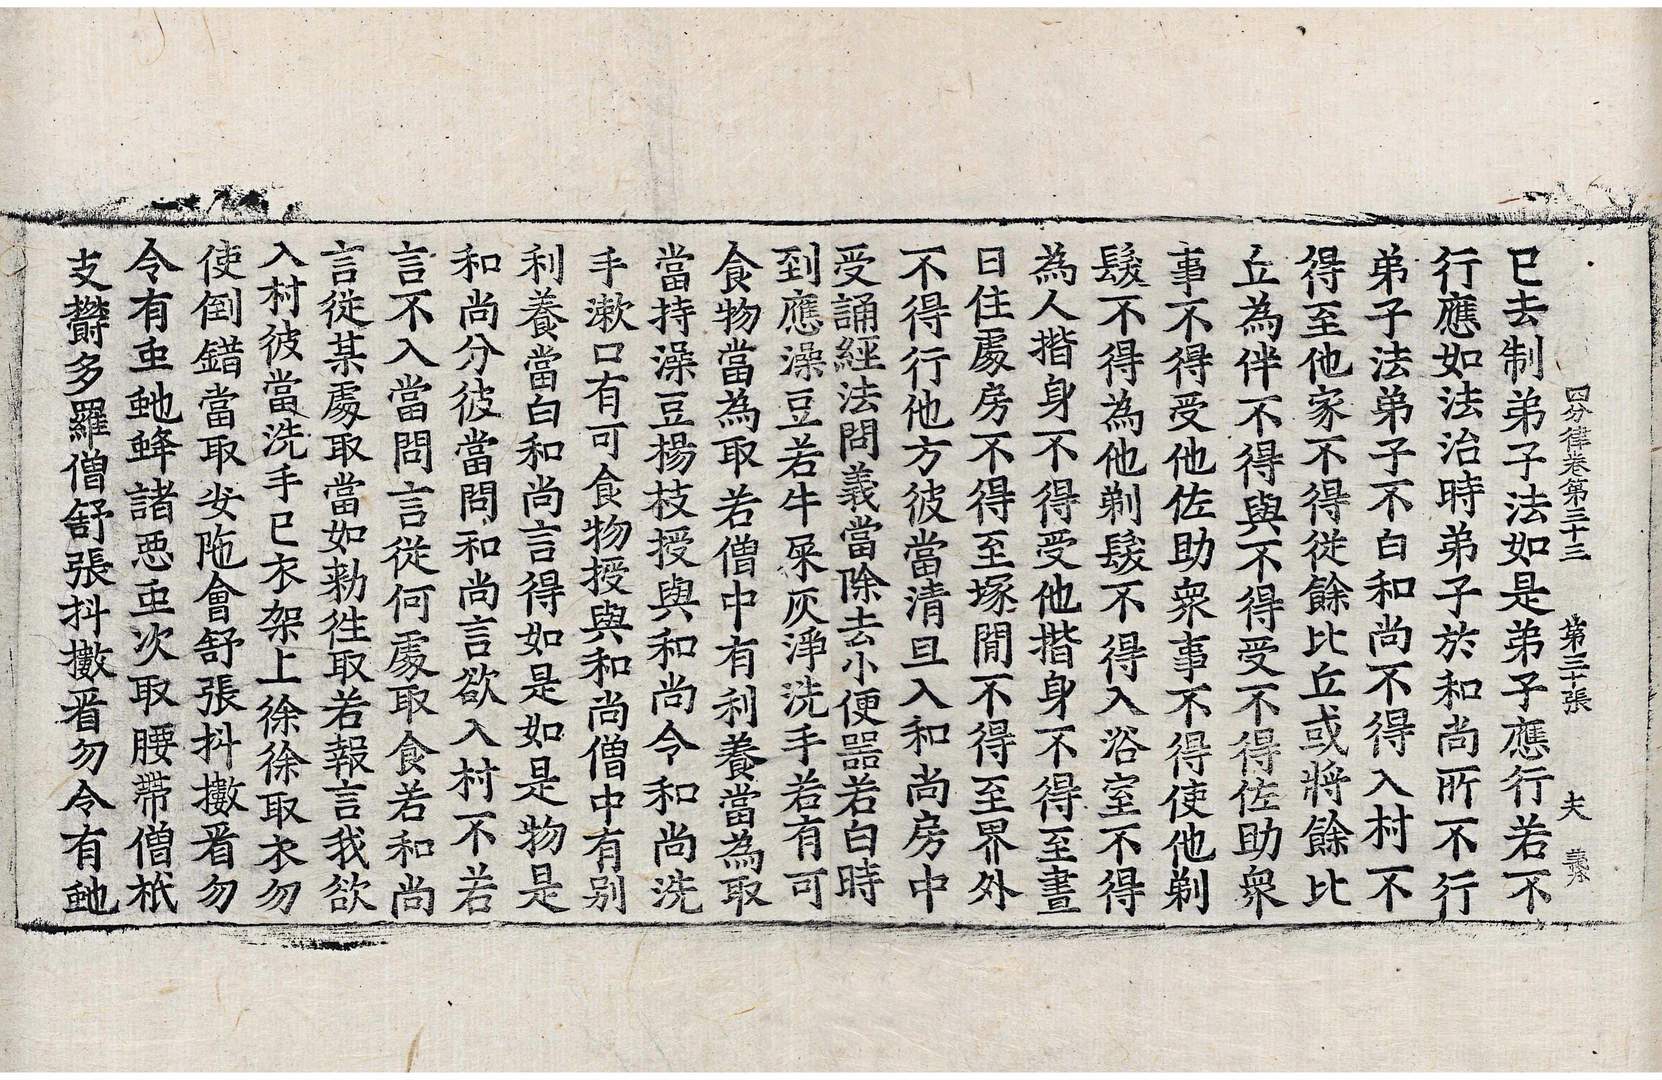 四分律卷第三十三 第三十張 夫
已去制弟子法如是弟子應行若不
行應如法治時弟子於和尚所不行
弟子法弟子不白和尚不得入村不
得至他家不得從餘比丘或將餘比
丘為伴不得與不得受不得佐助衆
事不得受他佐助衆事不得使他剃
髮不得為他剃髮不得入浴室不得
為人揩身不得受他揩身不得至晝
日住處房不得至塚閒不得至界外
不得行他方彼當清旦入和尚房中
受誦經法問義當除去小便器若白時
到應澡豆若牛屎灰淨洗手若有可
食物當為取若僧中有利養當為取
當持澡豆楊枝授與和尚令和尚洗
手漱口有可食物授與和尚僧中有別
利養當白和尚言得如是如是物是
和尚分彼當問和尚言欲入村不若
言不入當問言從何處取食若和尚
言從某處取當如勑徃取若報言我欲
入村彼當洗手已衣架上徐徐取衣勿
使倒錯當取安陁會舒張抖擻看勿
令有虫虵蜂諸惡虫次取腰帶僧祇
支欝多羅僧舒張抖擻看勿令有虵